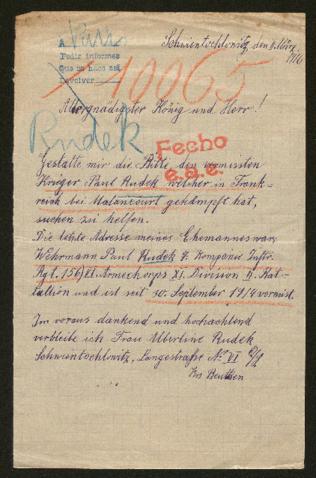 Schwientochlowitz, den 8. März
1916
A Paris
Poulr informes
Que se haco asi
Devolver
10065
Allergnädigster König und Herr!
Rudek
Fecho
e.a.e.
Gestatte mir die Bitte, den vermissten
Krieger Paul Rudek, welcher in Frank-
reich bei Malancourt gekämpft hat,
suchen zu helfen.
Die letzte Adresse meines Ehemannes war:
Wehrmann Paul Rudek 7. Kompanie Inftr.
Rgt. 156, Armeekorps XI. Division II. Bat-
tallion und ist seit 30. September 1914 vermisst.
Im voraus dankend und hochachtend
verbleibe ich Frau Rudek
Schwientochlowitz, Langestraße No VI
Krs Beuthen